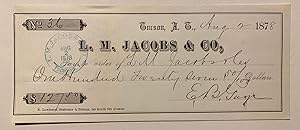 No 36 Tucson, A. T., Aug 2 1878
L. M. JACOBS & CO.,
Pay to order of L M Jacobs & Co
One Hundred Twenty Seven 50/100 Dollars
$127.50 E B Gage